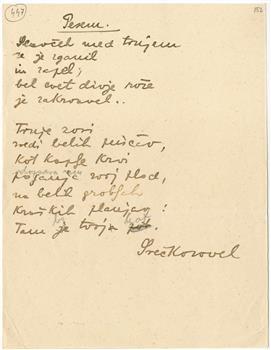 447
152
Pesem.
Slavček med trnjem
se je zganil
in zapel;
bel cvet divje rože
je zakrvavel..
Trnje zori
sredi belih pečin,
Kot kaplje krvi
poganja svoj plod,
na belih grobljah
Kraških planjav!
Tam je tvoja pot.
Srečkosovel